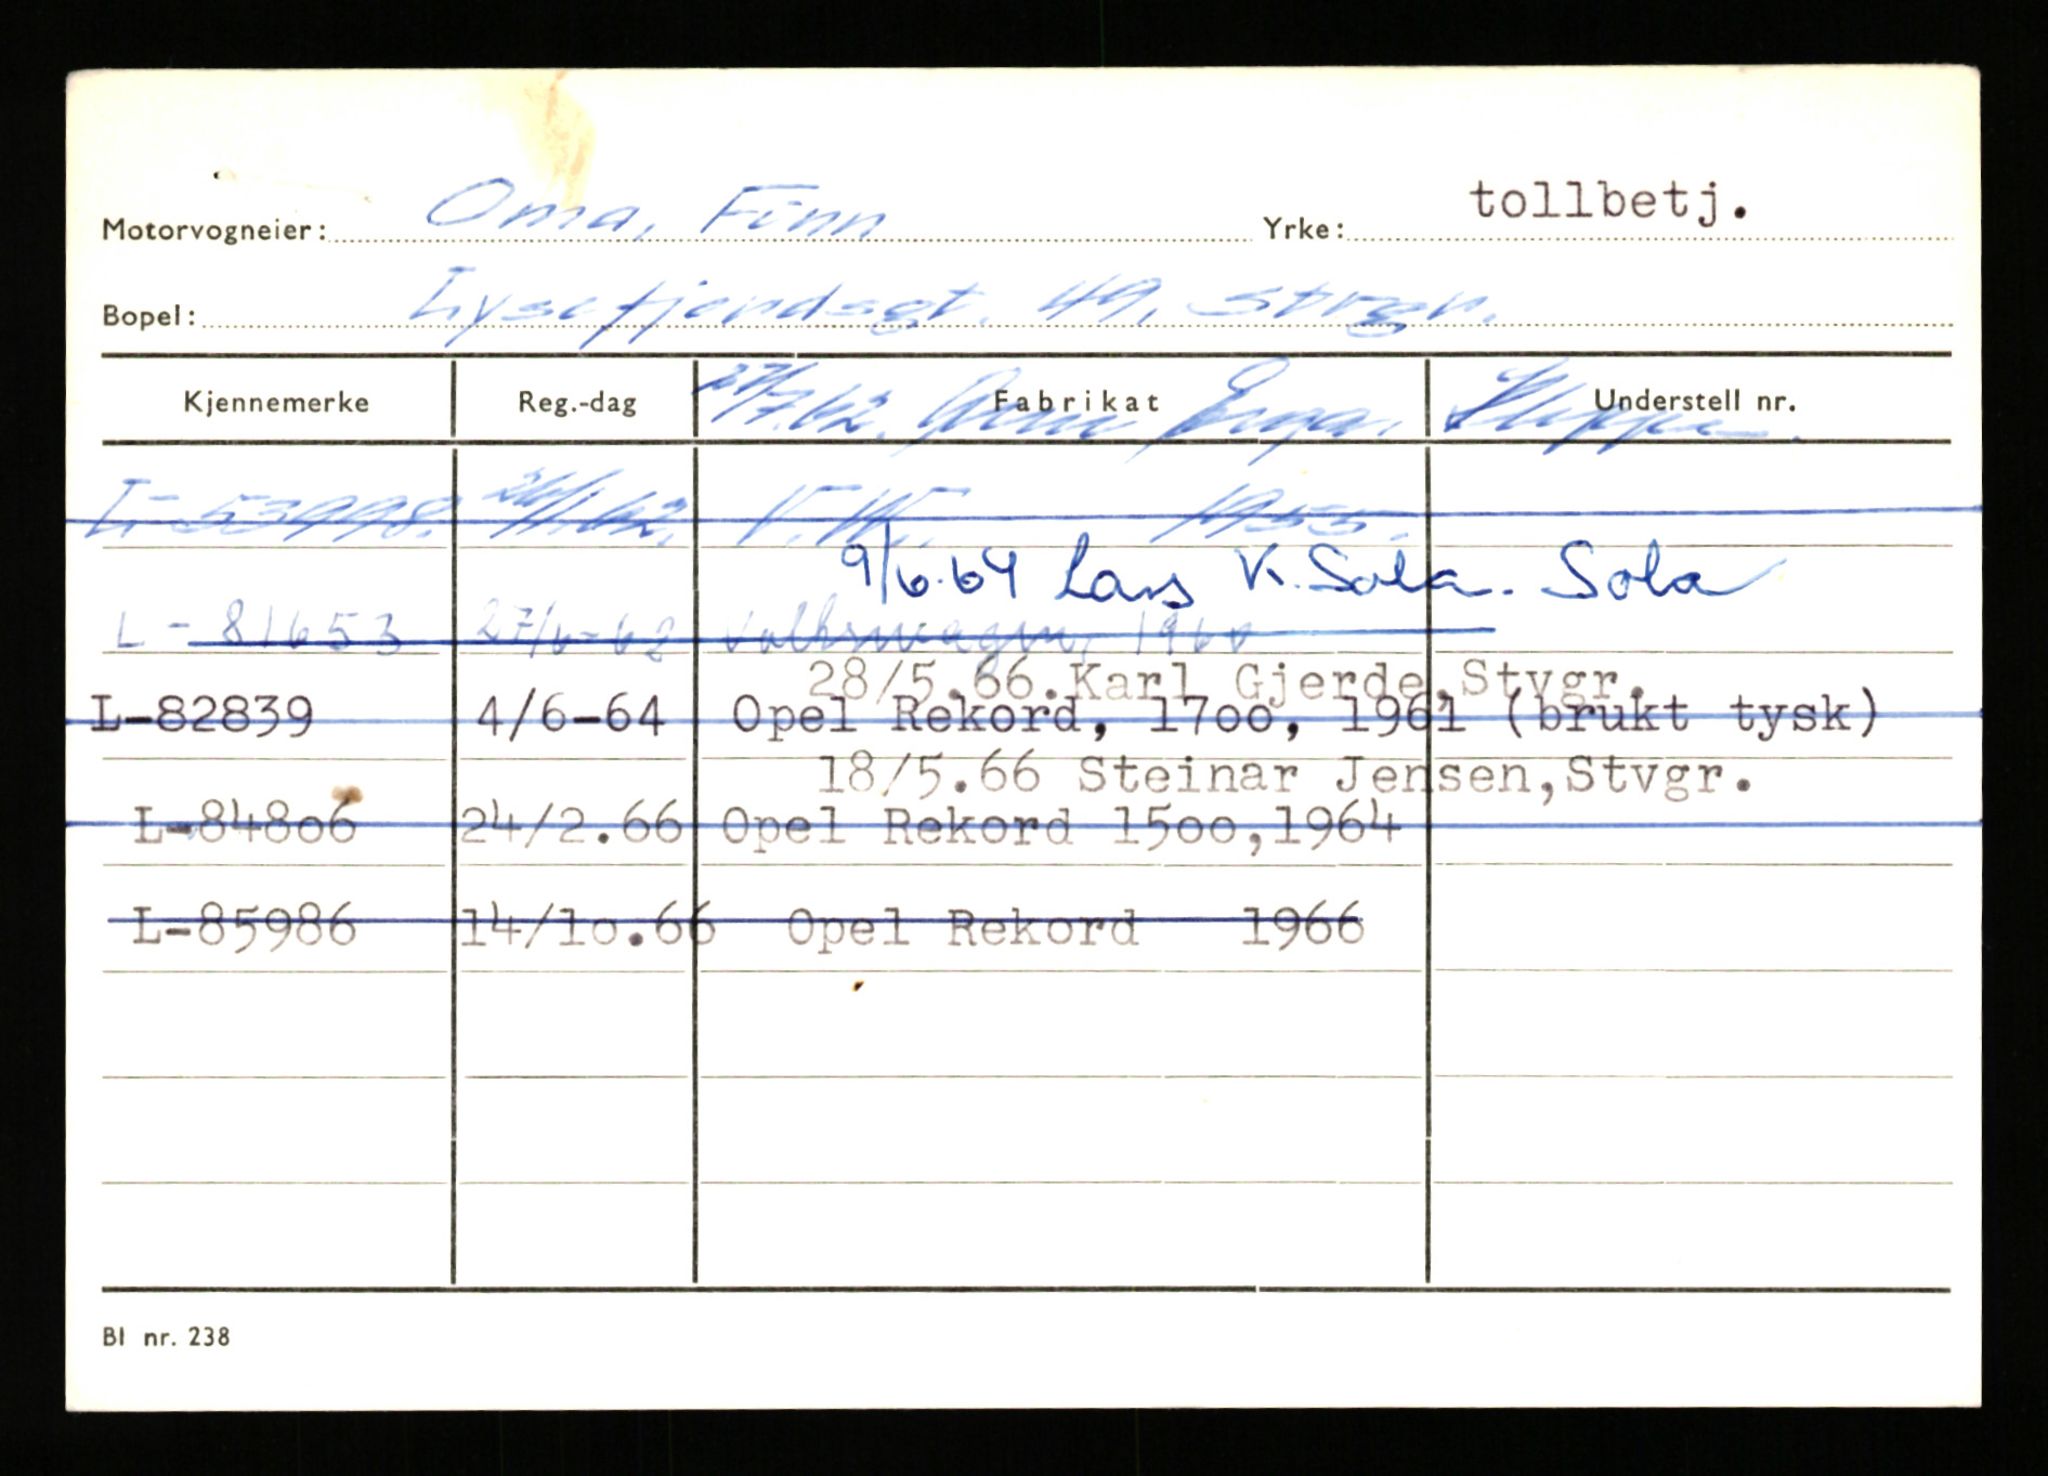 Motorvogneier: Oma, Finn Yrke: tollbetj.
Bopel: Lysefjordsgt. 49, Stvgr.
Kjennemerke Reg.-dag Fabrikat Understell nr.
27/7.62. Arne
L-53998. 26/1.62. V.W. 1955.
9/6.64 Lars K. Sola. Sola
L-81653 27/6-62 Volkswagen, 1960
28/5.66.Karl Gjerde,Stvgr.
L-82839 4/6-64 Opel Rekord, 1700, 1961 (brukt tysk)
18/5.66 Steinar Jensen,Stvgr.
L-84806 24/2.66 Opel Rekord 1500,1964
L-85986 14/10.66 Opel Rekord 1966
Bl nr. 238